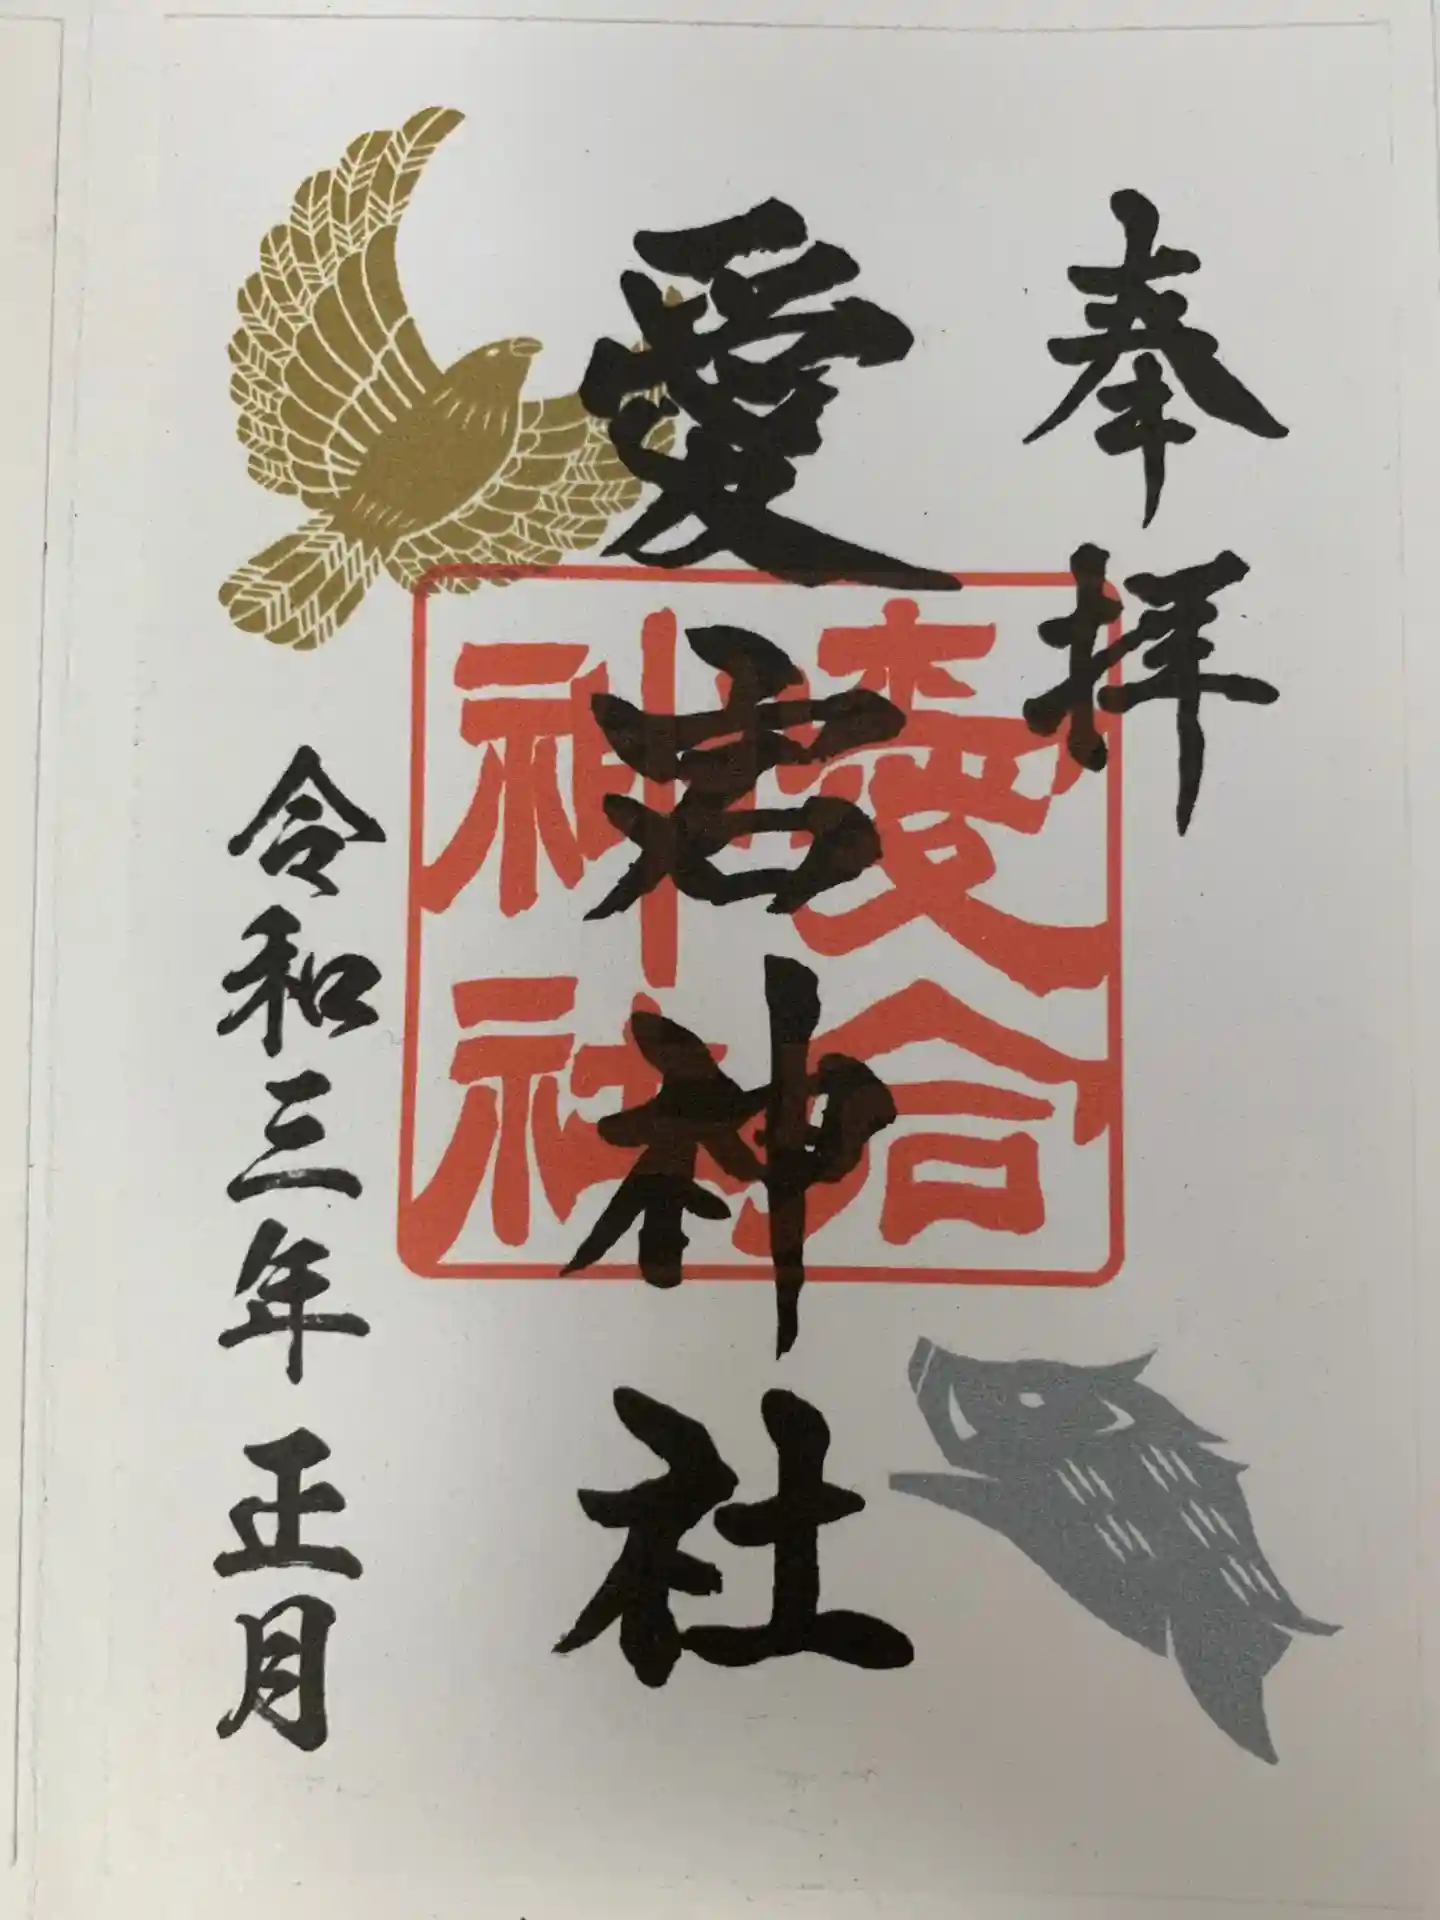 奉拝
愛宕神社
愛宕
神社
令和三年 正月